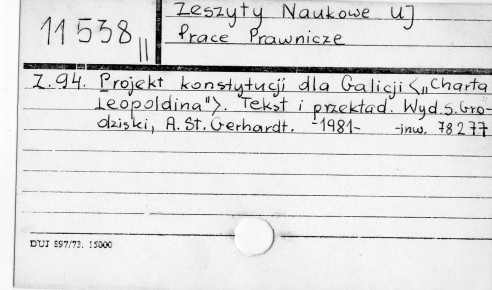 11538 II
Zeszyty Naukowe UJ
Prace Prawnicze
Z.94. Projekt konstytucji dla Galicji <„Charta
Leopoldina">. Tekst i przekład. Wyd. S. Gro-
dziski, A. St. Gerhardt. -1981- -inw. 78277
DUJ 897/73. 15000